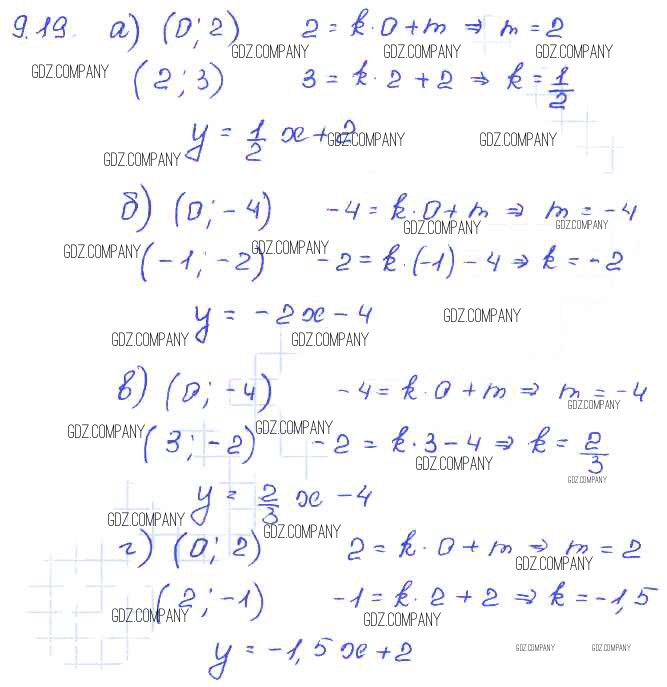 9.19. а) (0; 2) 2 = k · 0 + m ⇒ m = 2
GDZ.COMPANY GDZ.COMPANY GDZ.COMPANY
GDZ.COMPANY (2; 3) 3 = k · 2 + 2 ⇒ k = 1/2
y = 1/2 x + 2 GDZ.COMPANY GDZ.COMPANY
GDZ.COMPANY
б) (0; -4) -4 = k · 0 + m ⇒ m = -4
GDZ.COMPANY GDZ.COMPANY
GDZ.COMPANY (-1; -2) GDZ.COMPANY -2 = k · (-1) - 4 ⇒ k = -2
y = -2x - 4 GDZ.COMPANY
GDZ.COMPANY GDZ.COMPANY
в) (0; -4) -4 = k · 0 + m ⇒ m = -4
GDZ.COMPANY
GDZ.COMPANY (3; -2) GDZ.COMPANY -2 = k · 3 - 4 ⇒ k = 2/3
GDZ.COMPANY GDZ.COMPANY
y = 2/3 x - 4
GDZ.COMPANY GDZ.COMPANY
г) (0; 2) 2 = k · 0 + m ⇒ m = 2
GDZ.COMPANY
(2; -1) -1 = k · 2 + 2 ⇒ k = -1,5
GDZ.COMPANY GDZ.COMPANY
y = -1,5x + 2 GDZ.COMPANY GDZ.COMPANY